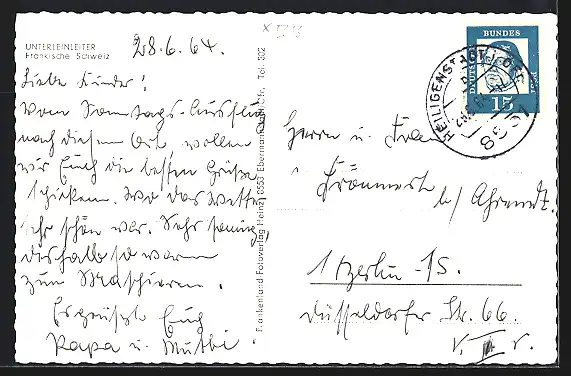 UNTERLEINLEITER
Fränkische Schweiz
28.6.64.
Liebe Kinder!
Vom Sonntags-Ausflug
nach diesem Ort, wollen
wir Euch die besten Grüße
schicken. Wo das Wetter
sehr schön war. Sehr sonnig,
deshalb so warm
zum Maschieren.
Es grüßt Euch
Papa u. Mutti.
Frankenland-Fotoverlag Heinz 8553 Ebermannstadt/Ofr., Tel. 302
DEUTSCHE BUNDESPOST
15
HEILIGENSTADT i. OFR.
8551
Herrn u. Frau
b/ Ahrendt.
1 Berlin-15.
Düsseldorfer Str. 66.
v. III r.